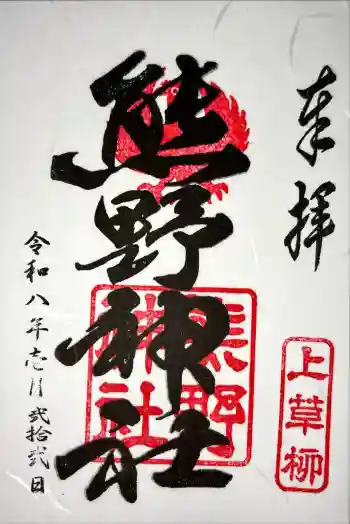 奉拝
上草柳
熊野神社
熊野神社
令和八年壱月弐拾弐日